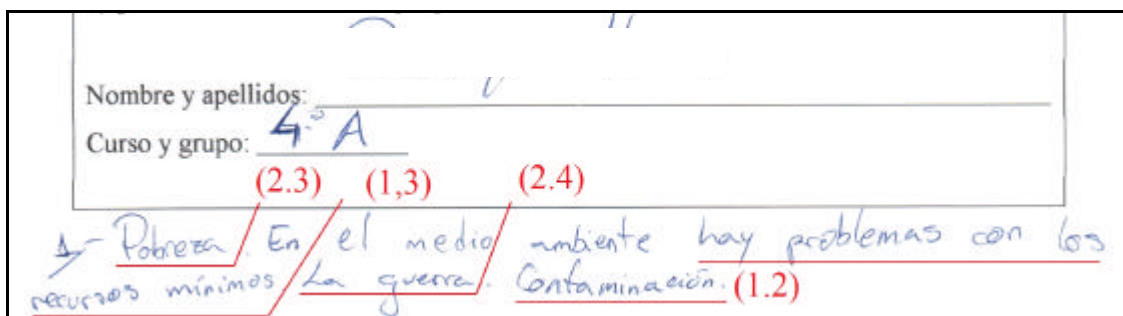 Nombre y apellidos:
Curso y grupo: 4.º A
(2.3) (1,3) (2.4)
1- Pobreza. En el medio ambiente hay problemas con los
recursos mínimos. La guerra. Contaminación. (1.2)